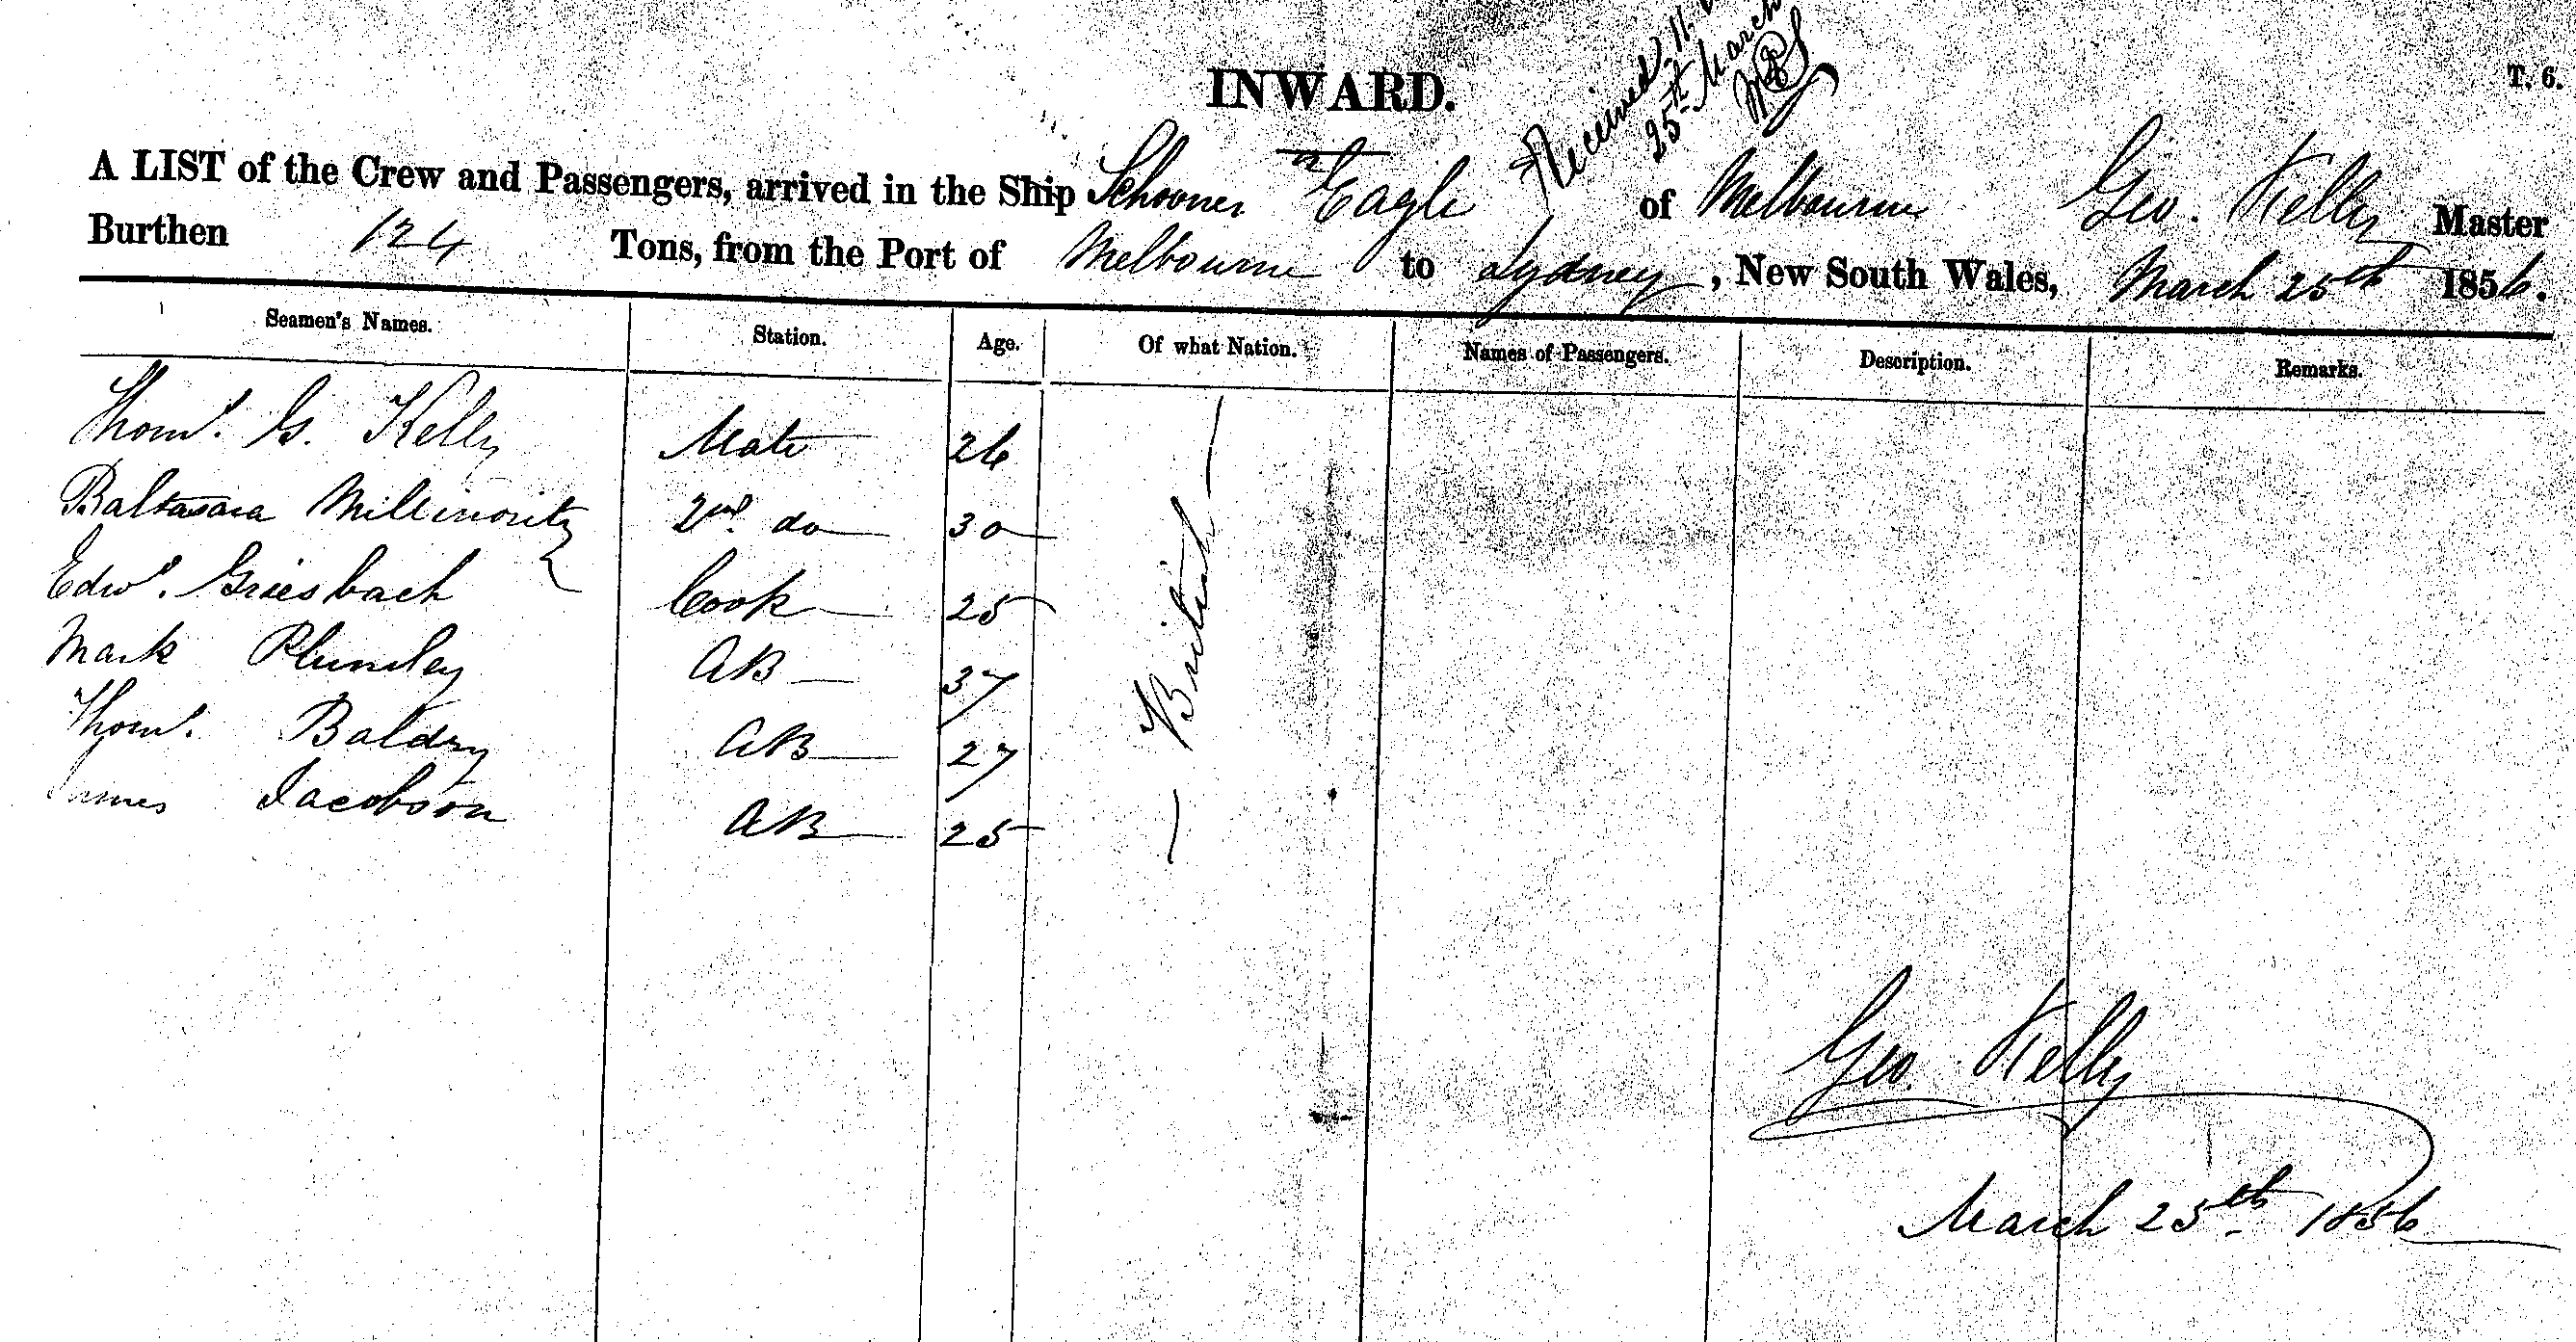 INWARD.
T. 6.
Received 11.
25th March
A LIST of the Crew and Passengers, arrived in the Ship Schooner "Eagle of Melbourne Geo. Kelly Master
Burthen 124 Tons, from the Port of Melbourne to Sydney, New South Wales, March 25th 1856.
Seamen's Names. Station. Age. Of what Nation. Names of Passengers. Description. Remarks.
Thomˢ. G. Kelly Mate 26
Baltasara 2nd do 30
Edwd. Griesbach Cook 25
Mark Plumley AB 37
Thoms. Baldry AB 27
James Jacobson AB 25
British
Geo. Kelly
March 25th 1856